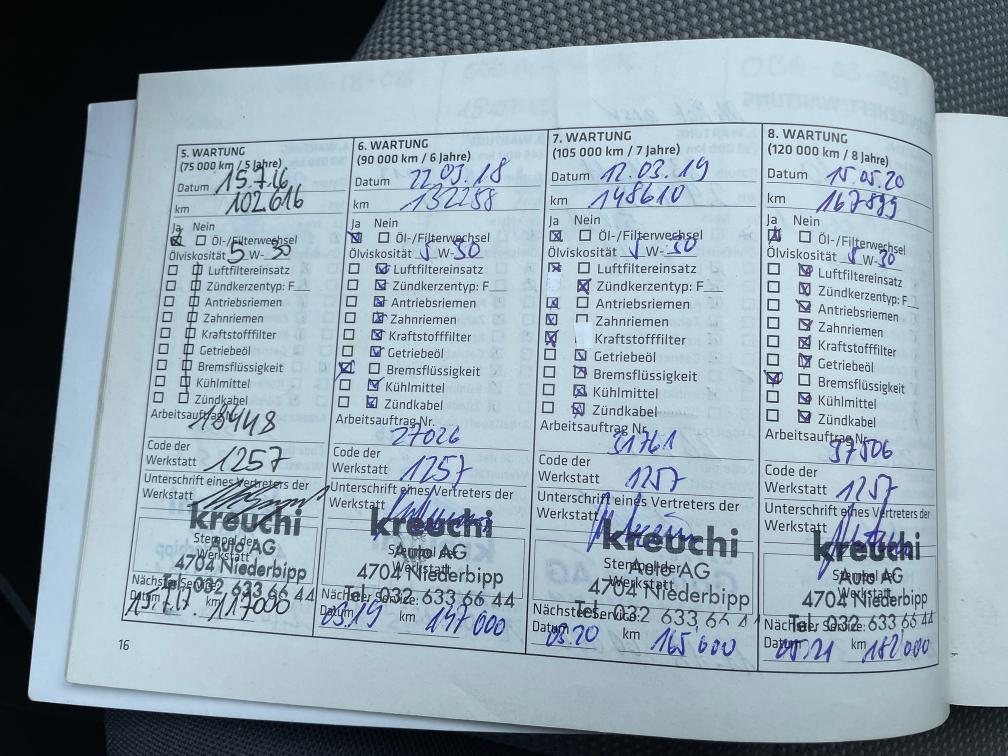 5. WARTUNG
(75 000 km / 5 Jahre)
Datum 15.7.16
km 102616
Ja Nein
Öl-/Filterwechsel
Ölviskosität 5 W- 30
Luftfiltereinsatz
Zündkerzentyp: F
Antriebsriemen
Zahnriemen
Kraftstofffilter
Getriebeöl
Bremsflüssigkeit
Kühlmittel
Zündkabel
Arbeitsauftrag Nr.
18448
Code der
Werkstatt 1257
Unterschrift eines Vertreters der
Werkstatt
kreuchi
Auto AG
Stempel der
Werkstatt
4704 Niederbipp
Tel. 032 633 66 44
Nächster Service:
Datum 15.7.17 km 117000
6. WARTUNG
(90 000 km / 6 Jahre)
Datum 22.03.18
km 132258
Ja Nein
Öl-/Filterwechsel
Ölviskosität 5 W- 30
Luftfiltereinsatz
Zündkerzentyp: F
Antriebsriemen
Zahnriemen
Kraftstofffilter
Getriebeöl
Bremsflüssigkeit
Kühlmittel
Zündkabel
Arbeitsauftrag Nr.
27026
Code der
Werkstatt 1257
Unterschrift eines Vertreters der
Werkstatt
kreuchi
Auto AG
Stempel der
Werkstatt
4704 Niederbipp
Tel. 032 633 66 44
Nächster Service:
Datum 03.19 km 147000
7. WARTUNG
(105 000 km / 7 Jahre)
Datum 12.03.19
km 148610
Ja Nein
Öl-/Filterwechsel
Ölviskosität 5 W- 30
Luftfiltereinsatz
Zündkerzentyp: F
Antriebsriemen
Zahnriemen
Kraftstofffilter
Getriebeöl
Bremsflüssigkeit
Kühlmittel
Zündkabel
Arbeitsauftrag Nr.
31761
Code der
Werkstatt 1257
Unterschrift eines Vertreters der
Werkstatt
kreuchi
Auto AG
Stempel der
Werkstatt
4704 Niederbipp
Tel. 032 633 66 44
Nächster Service:
Datum 03.20 km 165'000
8. WARTUNG
(120 000 km / 8 Jahre)
Datum 15.05.20
km 167899
Ja Nein
Öl-/Filterwechsel
Ölviskosität 5 W- 30
Luftfiltereinsatz
Zündkerzentyp: F
Antriebsriemen
Zahnriemen
Kraftstofffilter
Getriebeöl
Bremsflüssigkeit
Kühlmittel
Zündkabel
Arbeitsauftrag Nr.
37506
Code der
Werkstatt 1257
Unterschrift eines Vertreters der
Werkstatt
kreuchi
Auto AG
Stempel der
Werkstatt
4704 Niederbipp
Tel. 032 633 66 44
Nächster Service:
Datum 05.21 km 182'000
16